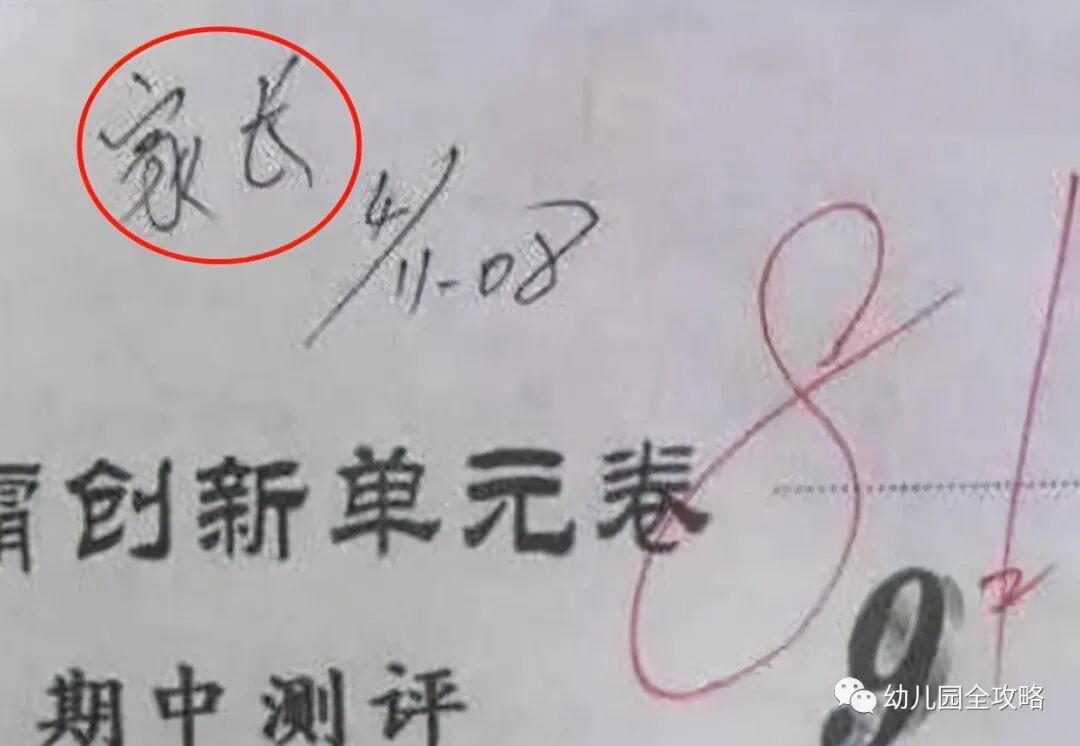 家长
4/11-08
81
创新单元卷
9
期中测评
幼儿园全攻略